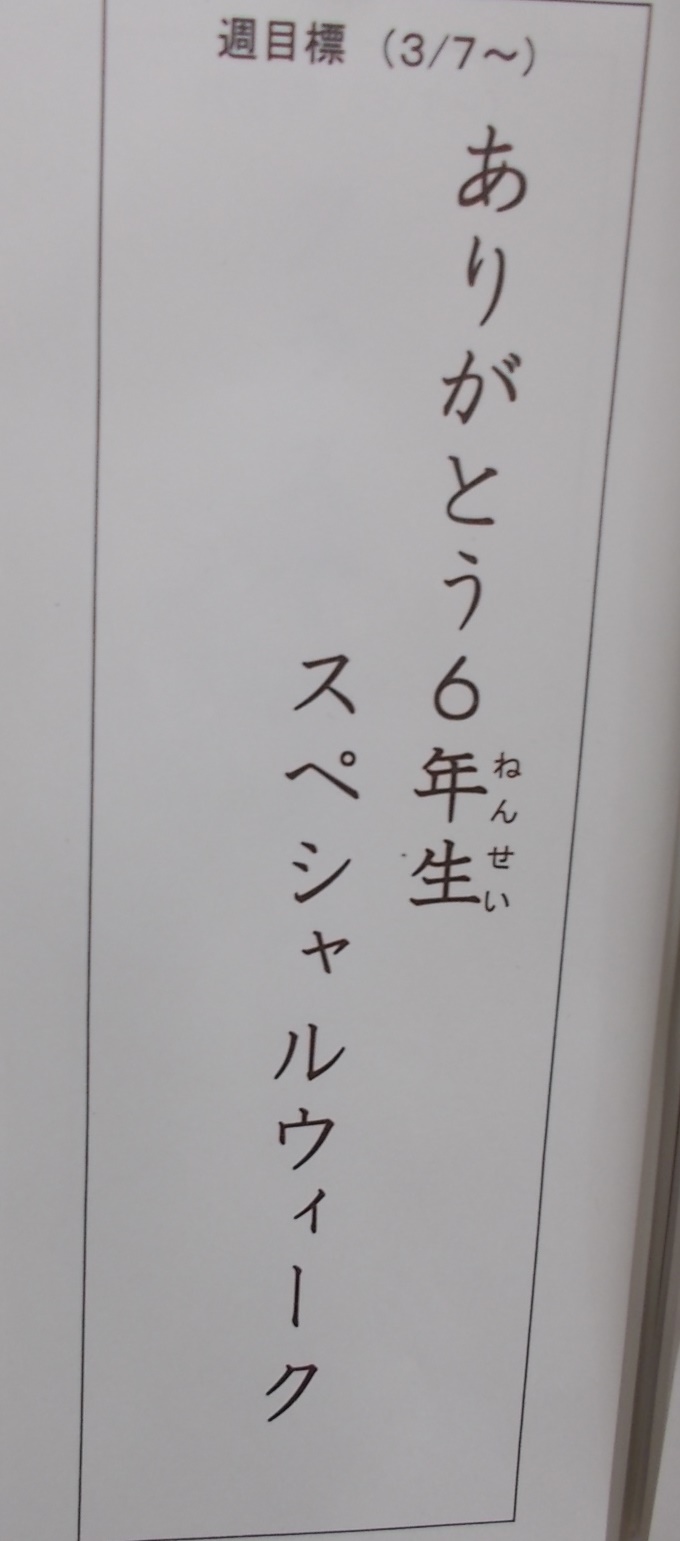 週目標（3/7～）
ありがとう6年生
ねんせい
スペシャルウィーク